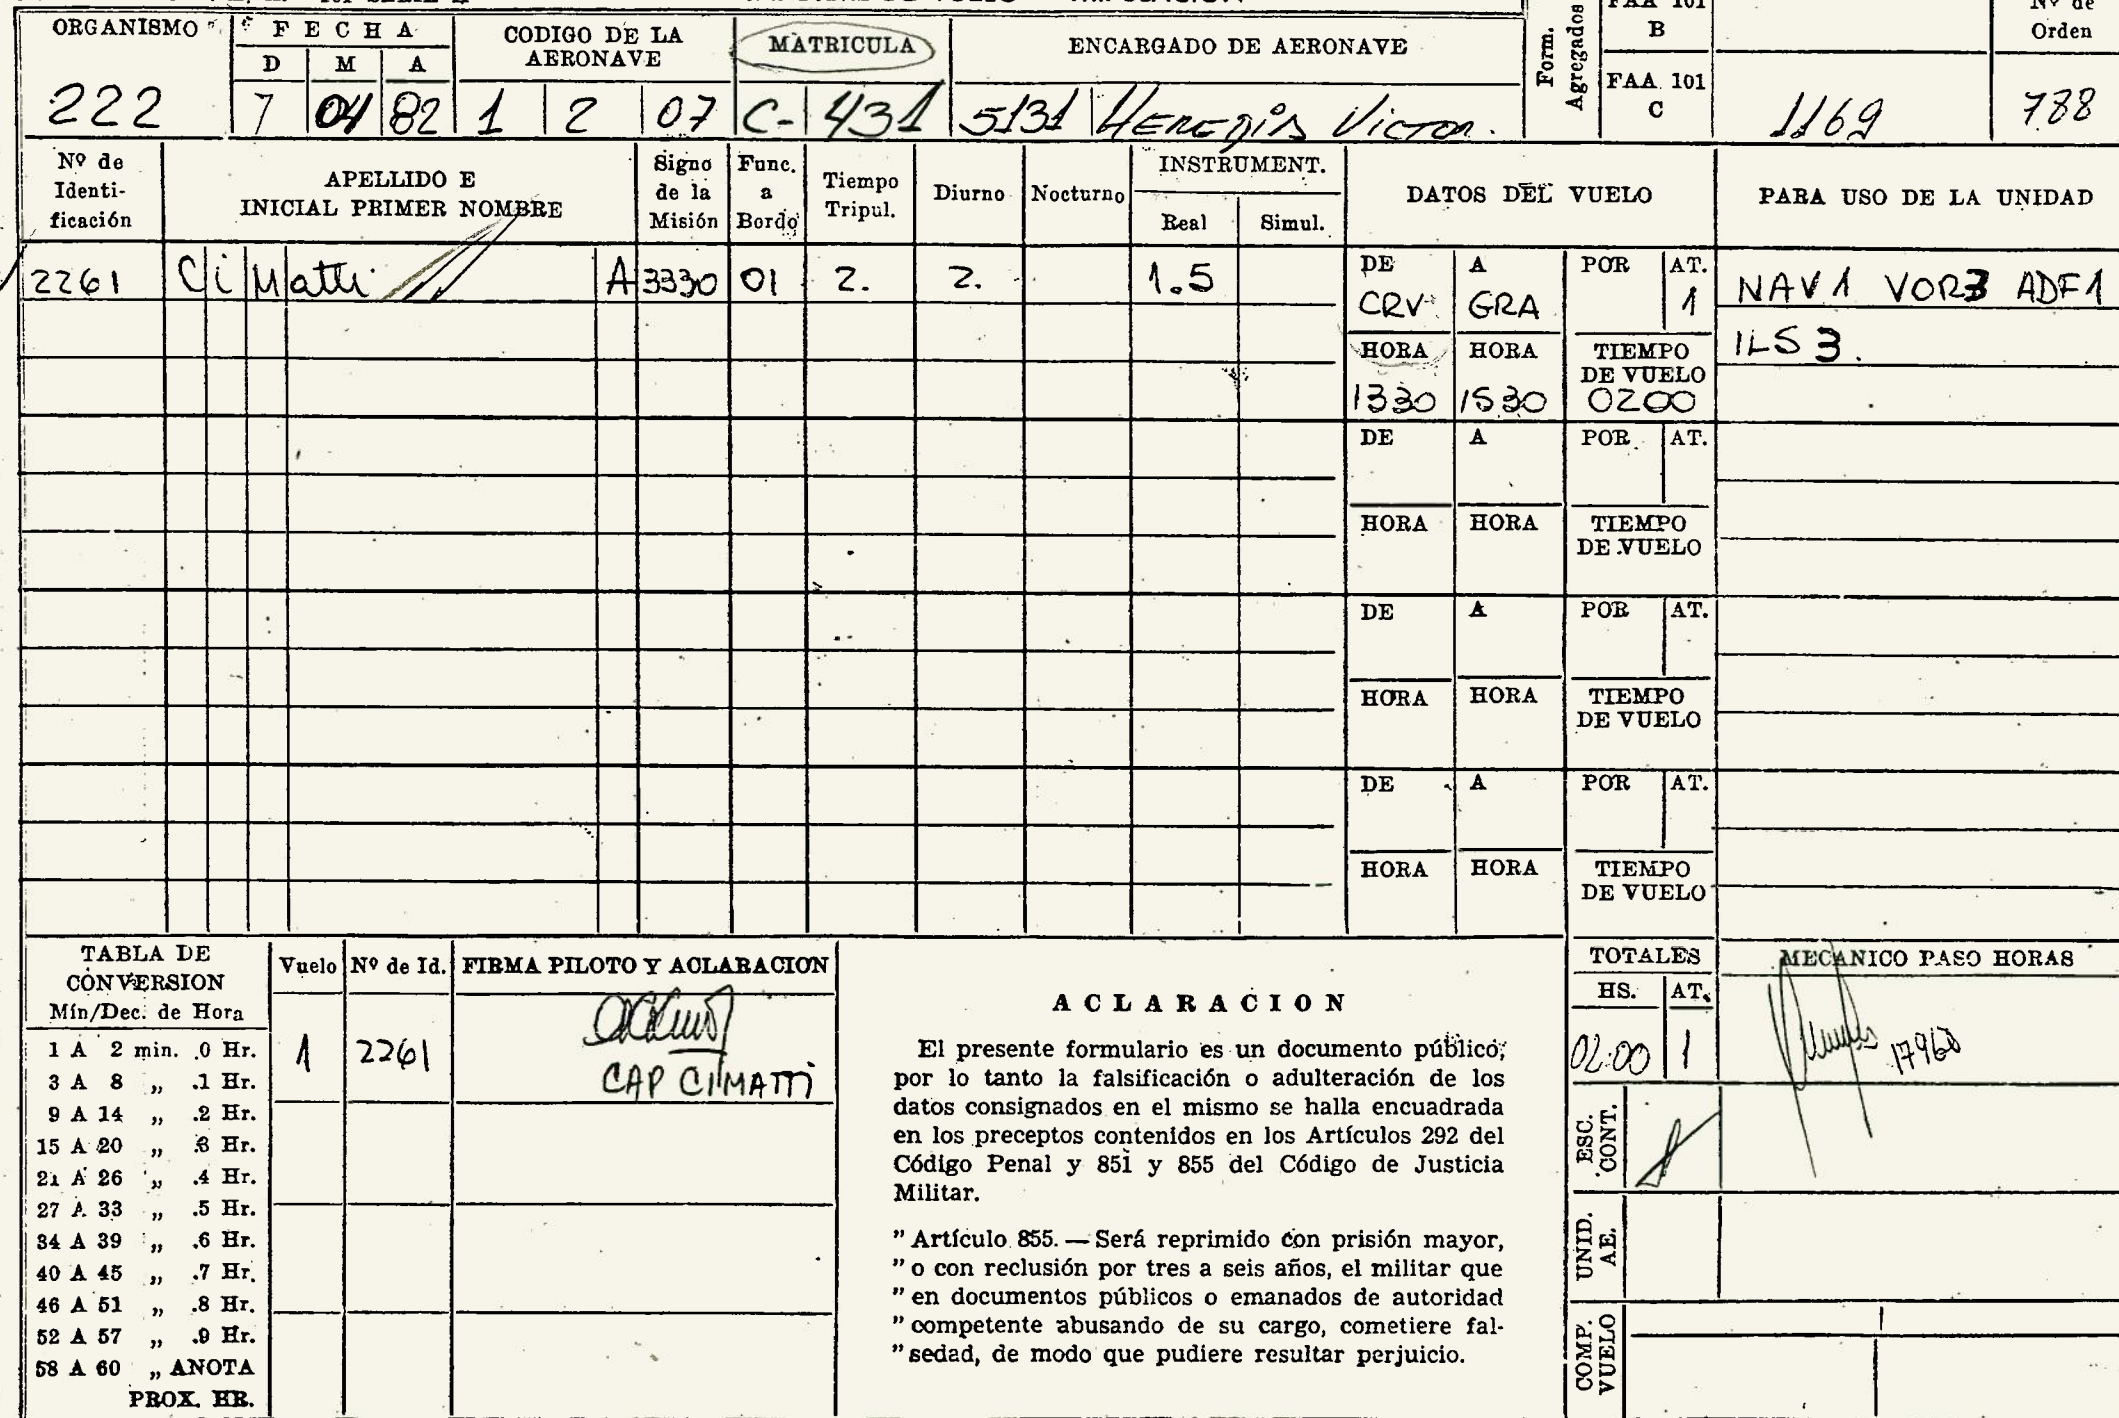 ORGANISMO
F E C H A
D M A
CODIGO DE LA
AERONAVE
MATRICULA
ENCARGADO DE AERONAVE
Form.
Agregados
FAA 101
B
FAA 101
C
Nº de
Orden
222
7 04 82
1 2 07
C- 431
5131 HEREDIA VICTOR.
1169
788
Nº de
Identi-
ficación
APELLIDO E
INICIAL PRIMER NOMBRE
Signo
de la
Misión
Func.
a
Bordo
Tiempo
Tripul.
Diurno
Nocturno
INSTRUMENT.
Real
Simul.
DATOS DEL VUELO
PARA USO DE LA UNIDAD
2261 Ci Matti A 3330 01 2. 2. 1.5
DE A POR AT.
CRV GRA 1
NAV 1 VOR3 ADF1
ILS 3.
HORA HORA TIEMPO
DE VUELO
1330 1530 0200
DE A POR AT.
HORA HORA TIEMPO
DE VUELO
DE A POR AT.
HORA HORA TIEMPO
DE VUELO
DE A POR AT.
HORA HORA TIEMPO
DE VUELO
TABLA DE
CONVERSION
Min/Dec. de Hora
1 A 2 min. .0 Hr.
3 A 8 „ .1 Hr.
9 A 14 „ .2 Hr.
15 A 20 „ .3 Hr.
21 A 26 „ .4 Hr.
27 A 33 „ .5 Hr.
34 A 39 „ .6 Hr.
40 A 45 „ .7 Hr.
46 A 51 „ .8 Hr.
52 A 57 „ .9 Hr.
58 A 60 „ ANOTA
PROX. HR.
Vuelo
Nº de Id.
FIRMA PILOTO Y ACLARACION
1 2261
CAP CIMATTI
A C L A R A C I O N
El presente formulario es un documento público,
por lo tanto la falsificación o adulteración de los
datos consignados en el mismo se halla encuadrada
en los preceptos contenidos en los Artículos 292 del
Código Penal y 851 y 855 del Código de Justicia
Militar.
" Artículo 855. — Será reprimido con prisión mayor,
" o con reclusión por tres a seis años, el militar que
" en documentos públicos o emanados de autoridad
" competente abusando de su cargo, cometiere fal-
" sedad, de modo que pudiere resultar perjuicio.
TOTALES
HS. AT.
02:00 1
MECANICO PASO HORAS
17960
ESC.
CONT.
UNID.
AE.
COMP.
VUELO